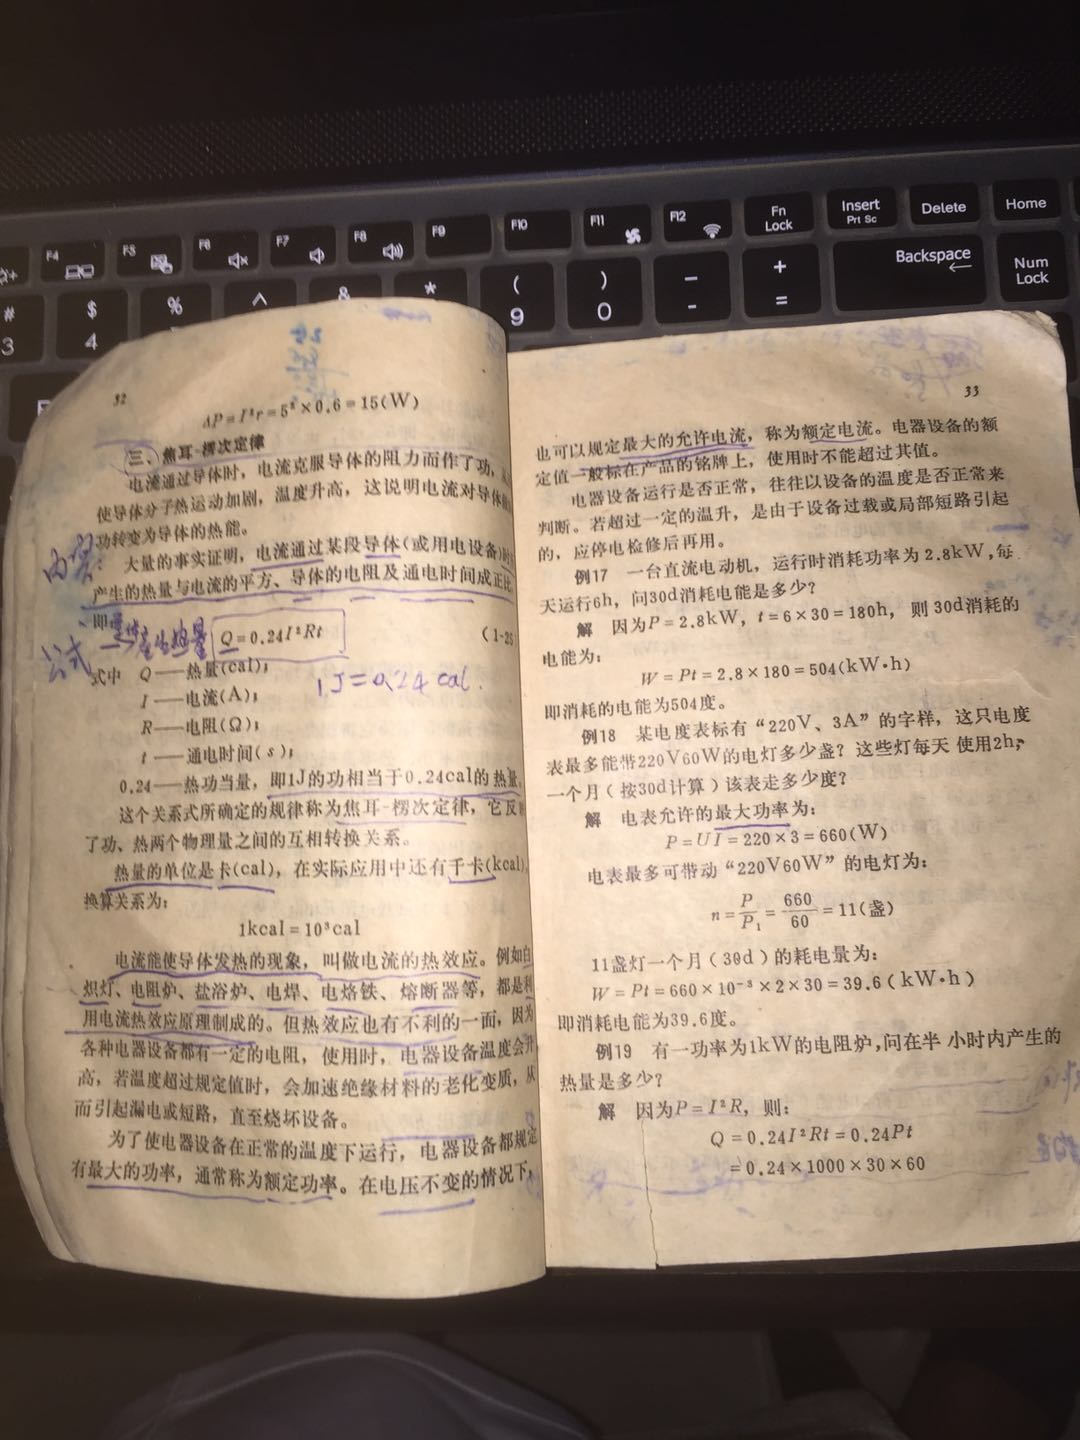 F4
F5
F6
F7
F8
F9
F10
F11
F12
Fn
Lock
Insert
Prt Sc
Delete
Home
#
3
$
4
%
^
&
*
(
9
)
0
-
+
=
Backspace
Num
Lock
32
ΔP=I²r=5²×0.6=15(W)
三、焦耳-楞次定律
电流通过导体时，电流克服导体的阻力而作了功，
使导体分子热运动加剧，温度升高，这说明电流对导体
功转变为导体的热能。
内容：
大量的事实证明，电流通过某段导体(或用电设备)时
产生的热量与电流的平方、导体的电阻及通电时间成正比
即
产生热量
Q=0.24I²Rt
(1-25
公式
式中 Q——热量(cal)；
1J=0.24 cal.
I——电流(A)；
R——电阻(Ω)；
t——通电时间(s)；
0.24——热功当量，即1J的功相当于0.24cal的热量
这个关系式所确定的规律称为焦耳-楞次定律，它反
了功、热两个物理量之间的互相转换关系。
热量的单位是卡(cal)，在实际应用中还有千卡(kcal)
换算关系为：
1kcal=10³cal
电流能使导体发热的现象，叫做电流的热效应。例如白
炽灯、电阻炉、盐浴炉、电焊、电烙铁、熔断器等，都是利
用电流热效应原理制成的。但热效应也有不利的一面，因为
各种电器设备都有一定的电阻，使用时，电器设备温度会升
高，若温度超过规定值时，会加速绝缘材料的老化变质，从
而引起漏电或短路，直至烧坏设备。
为了使电器设备在正常的温度下运行，电器设备都规定
有最大的功率，通常称为额定功率。在电压不变的情况下，
33
也可以规定最大的允许电流，称为额定电流。电器设备的额
定值一般标在产品的铭牌上，使用时不能超过其值。
电器设备运行是否正常，往往以设备的温度是否正常来
判断。若超过一定的温升，是由于设备过载或局部短路引起
的，应停电检修后再用。
例17 一台直流电动机，运行时消耗功率为2.8kW，每
天运行6h，问30d消耗电能是多少？
解 因为P=2.8kW，t=6×30=180h，则30d消耗的
电能为：
W=Pt=2.8×180=504(kW·h)
即消耗的电能为504度。
例18 某电度表标有“220V、3A”的字样，这只电度
表最多能带220V60W的电灯多少盏？这些灯每天 使用2h，
一个月（按30d计算）该表走多少度？
解 电表允许的最大功率为：
P=UI=220×3=660(W)
电表最多可带动“220V60W”的电灯为：
n=P/P₁=660/60=11(盏)
11盏灯一个月（30d）的耗电量为：
W=Pt=660×10⁻³×2×30=39.6(kW·h)
即消耗电能为39.6度。
例19 有一功率为1kW的电阻炉，问在半 小时内产生的
热量是多少？
解 因为P=I²R，则：
Q=0.24I²Rt=0.24Pt
=0.24×1000×30×60